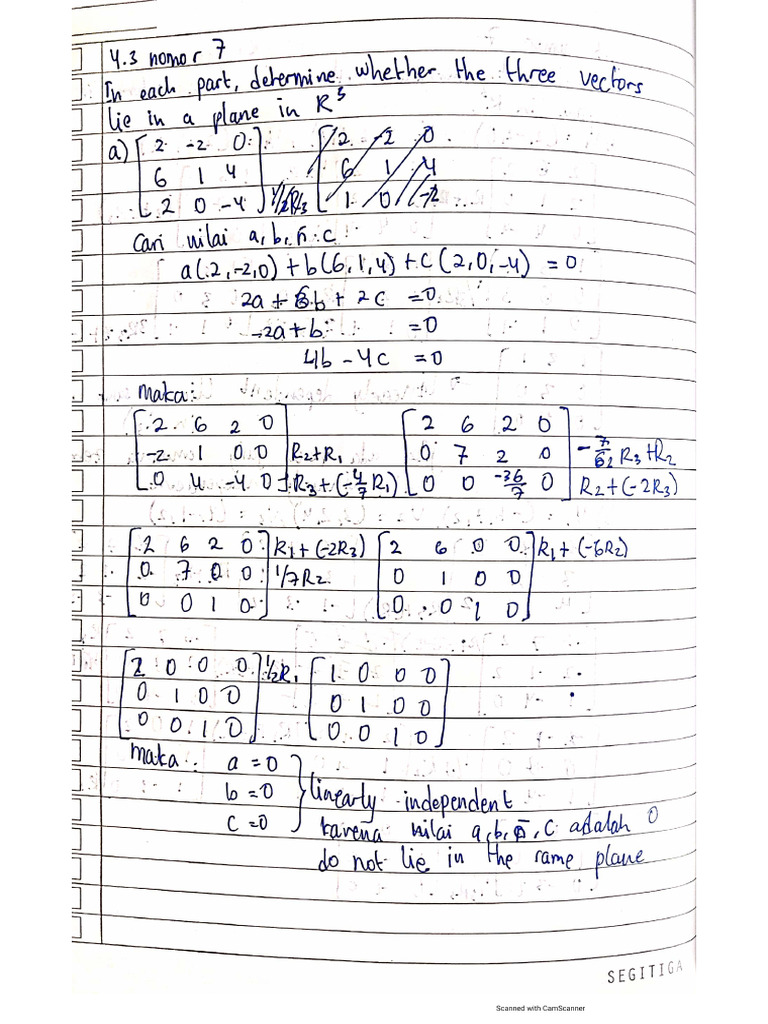 4.3 nomor 7
In each part, determine whether the three vectors
lie in a plane in R³
a) [2 -2 0; 6 1 4; 2 0 -4] 1/2R3 [2 -2 0; 6 1 4; 1 0 -2]
Cari nilai a, b, n c
a(2,-2,0) + b(6,1,4) + c(2,0,-4) = 0
2a + 6b + 2c = 0
-2a + b = 0
4b - 4c = 0
maka:
[2 6 2 0; -2 1 0 0; 0 4 -4 0] R2+R1 R3+(-4/7 R1) [2 6 2 0; 0 7 2 0; 0 0 -36/7 0] R3+R2 R2+(-2R3)
[2 6 2 0; 0 7 0 0; 0 0 1 0] R1+(-2R3) 1/7R2 [2 6 0 0; 0 1 0 0; 0 0 1 0] R1+(-6R2)
[2 0 0 0; 0 1 0 0; 0 0 1 0] 1/2R1 [1 0 0 0; 0 1 0 0; 0 0 1 0]
maka: a = 0
b = 0
c = 0
linearly independent
karena nilai a, b, n, c adalah 0
do not lie in the same plane
SEGITIGA
Scanned with CamScanner